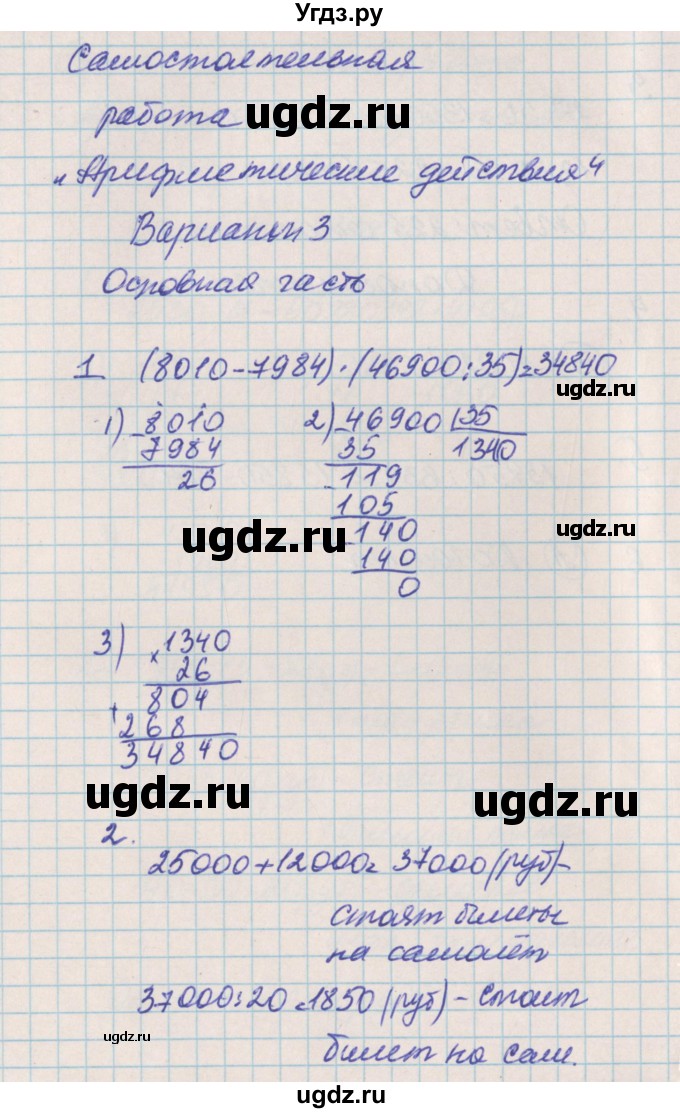 Угдз.ру
Самостоятельная
работа ugdz.ru ugdz.ru
„Арифметические действия“
Вариант 3
Основная часть
1 (8010-7984)·(46900:35)=34840
ugdz.ru
1) 8010 2) 46900 35
- 7984 35 1340
26 - 119
105
ugdz.ru ugdz.ru
- 140
140
0
3) × 1340
26
+ 804
268
34840
ugdz.ru ugdz.ru
2.
25000+12000=37000 (руб)-
стоят билеты
на самолёт
37000:20=1850 (руб) - стоит
ugdz.ru ugdz.ru
билет на сам.
ugdz.ru